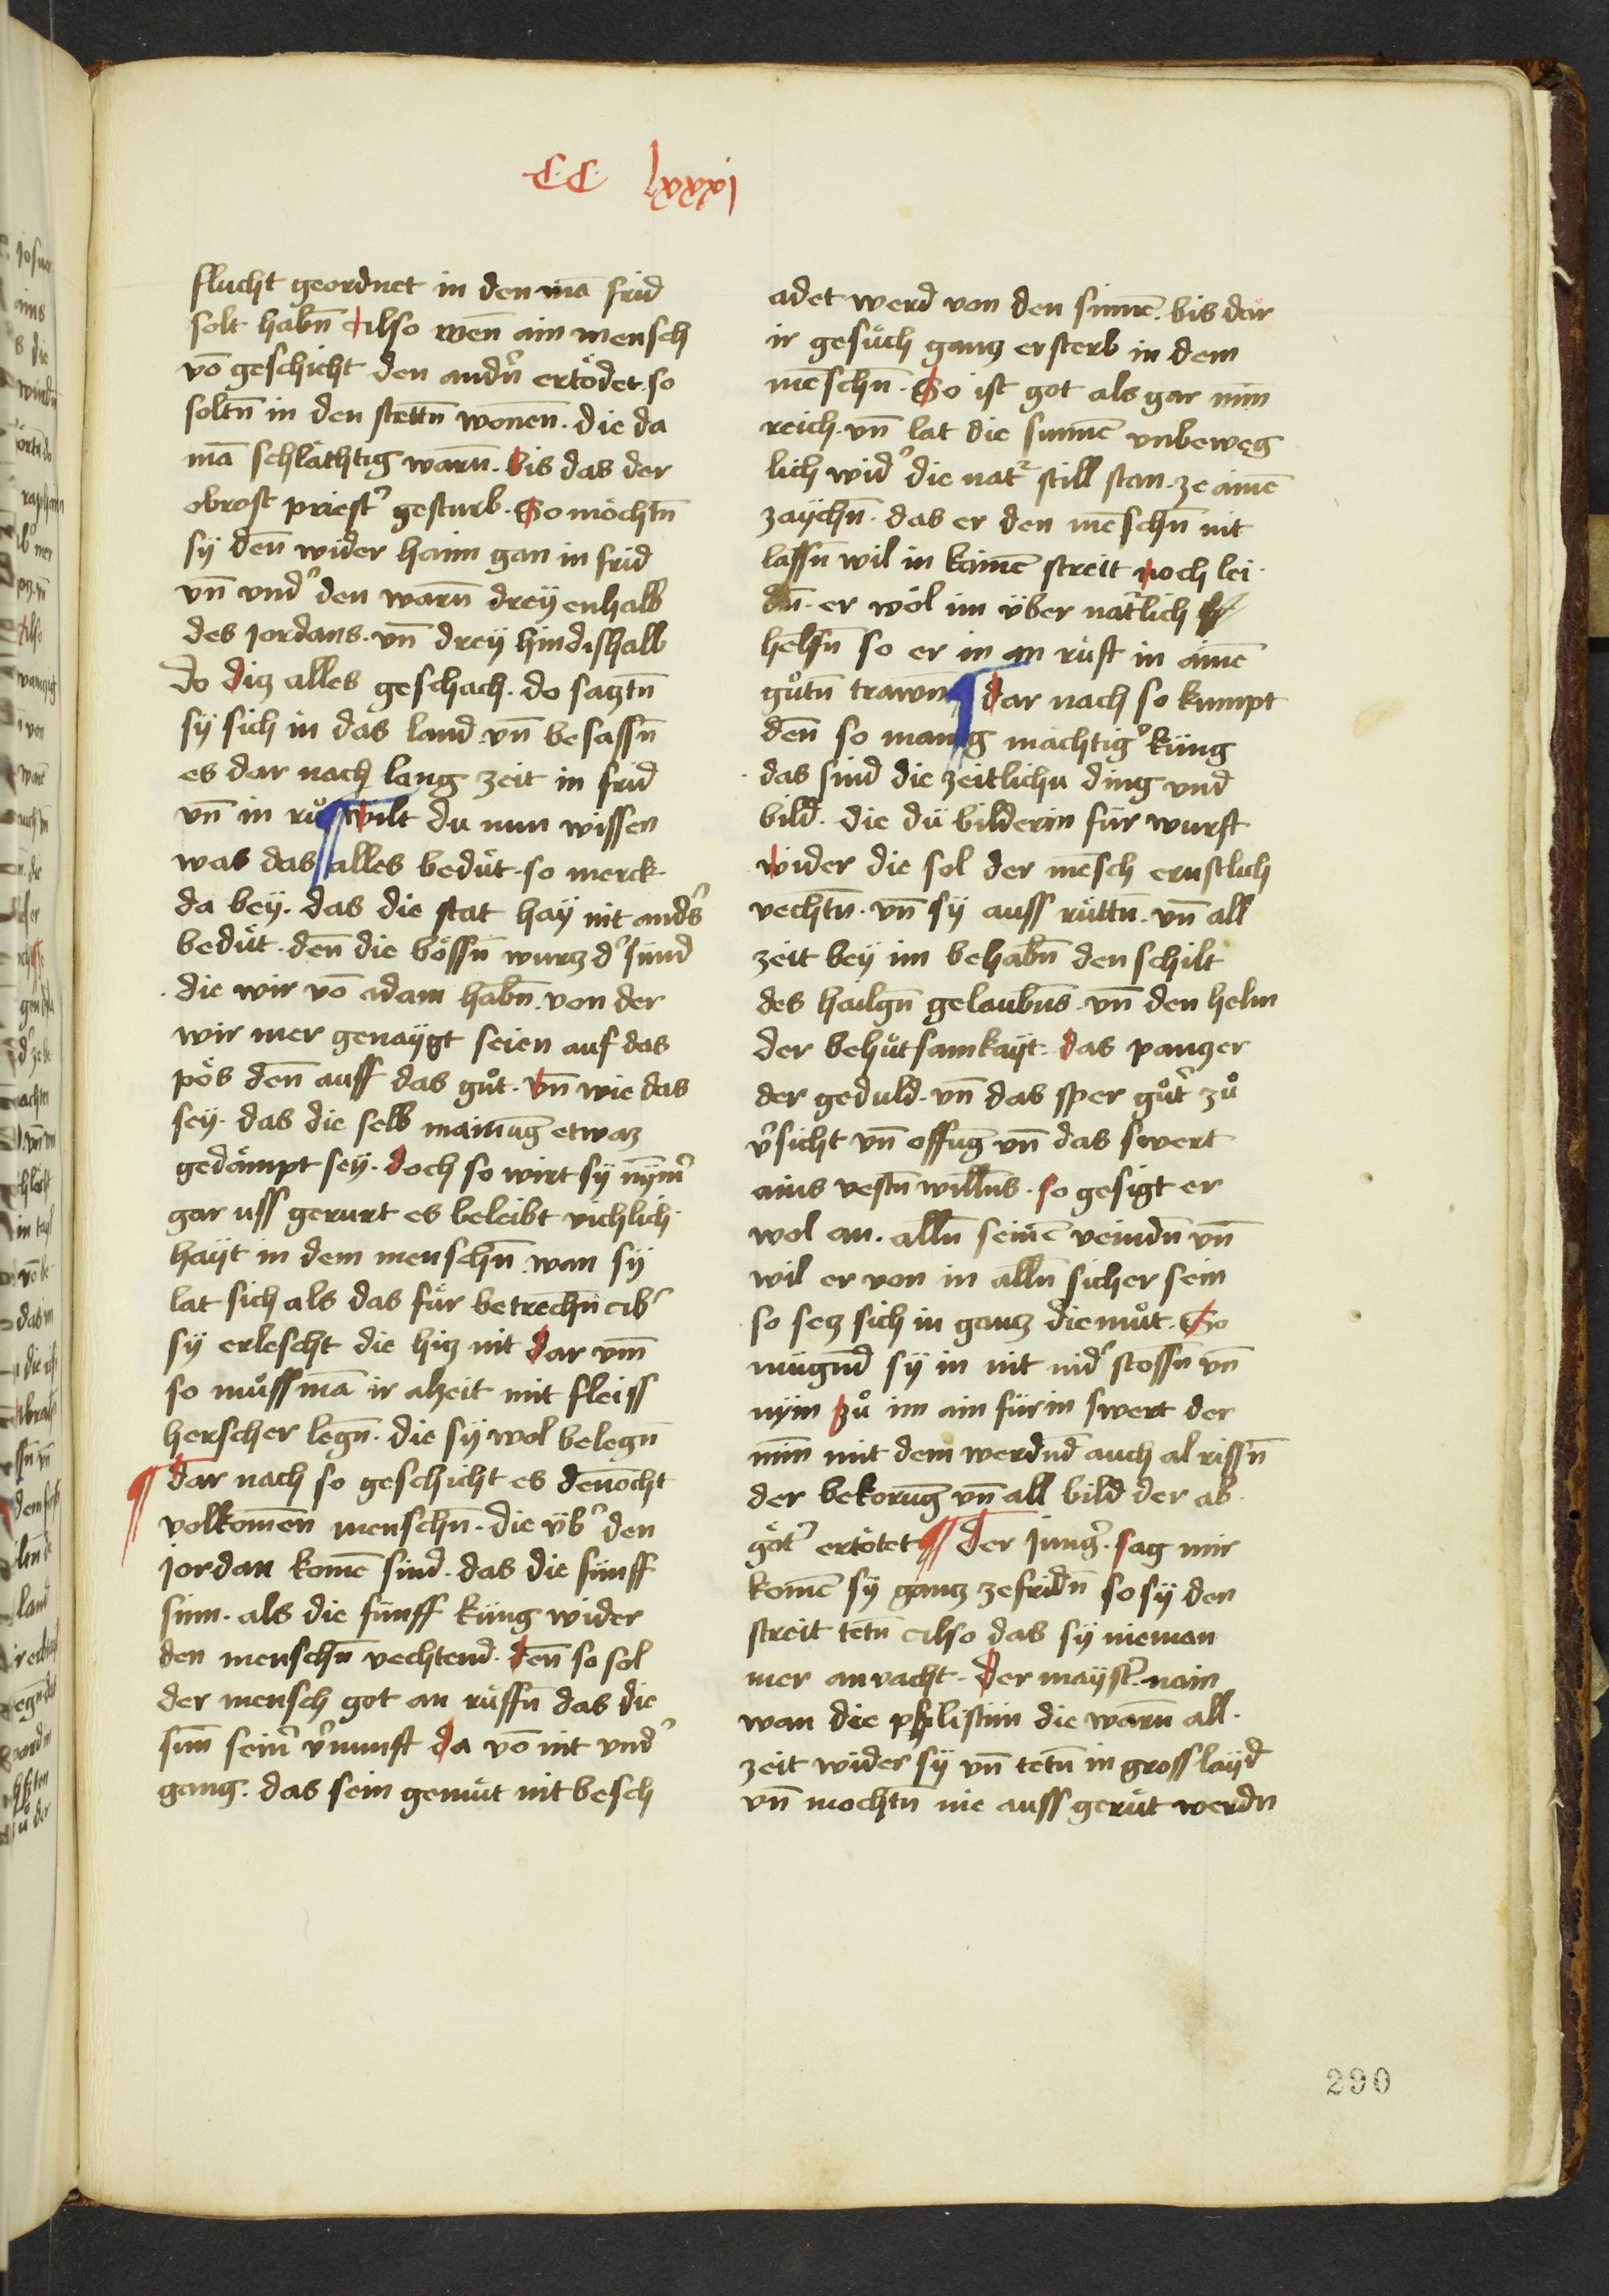 CC lxxxi
flucht geordnet in den mā frid
solt habn̄ Also wen̄ ain mensch
vō geschicht den andn̄ ertödet. so
soltn̄ in den stettn̄ wonen̄. die da
mā schlächtig warn̄. bis das der
obrost priest' gesturb. So möchtn̄
sÿ den̄ wider haim gan in frid
vn̄ vnd' den warn̄ dreÿ enhalb
des Jordans. vn̄ dreÿ hindishalb
do diz alles geschach. do saztn̄
sÿ sich in das land vn̄ besassn̄
es dar nach lang zeit in frid
vn̄ in rů ¶ wilt du nun wissen
was das alles bedüt. so merck
da beÿ. das die stat haÿ nit andˢ
bedüt. den̄ die bössn̄ wurz d' sünd
die wir vō adam habn̄. von der
wir mer genaÿgt seien auf das
pös den̄ auff das gůt. vn̄ wie das
seÿ. das die selb mainūg etwaz
gedämpt seÿ. doch so wirt sÿ nÿm̄'
gar uss gerurt es beleibt vichlich
haÿt in dem menschn̄. wan sÿ
lat sich als das für betrechn̄ ab'
sÿ erlescht die hiz nit dar vm̄
so můss mā ir alzeit mit fleiss
herscher legn̄. die sÿ wol belegn̄
¶ dar nach so geschicht es den̄ocht
volkomen̄ menschn̄. die üb' den
Jordan kōmē sind. das die fünff
sinn. als die fünff küng wider
den menschn̄ vechtend. den̄ so sol
der mensch got an rüffn̄ das die
sun̄ sein' v'nunft da vō nit vnd'
gang. das sein gemüt nit besch
adet werd von den sin̄nē. bis dar
ir gesůch ganz ersterb in dem
mēschn̄. So ist got als gar min̄
reich. vn̄ lat die sun̄nē vnbeweg
lich wid' die nat' still stan. ze ainē
zaÿchn̄. das er den mēschn̄ nit
lassn̄ wil in kainē streit noch lei
dn̄. er wöl im über nātlich
helfn̄ so er in an rüft in ainē
gůtn̄ trawn̄ ¶ dar nach so kumpt
den̄ so manig mächtig' küng
das sind die zeitlichn̄ ding vnd
bild. die dü bilderin für wurft
wider die sol der mēsch ernstlich
vechtn̄. vn̄ sÿ auss rüttn̄. vn̄ all
zeit beÿ im behabn̄ den schilt
des hailgn̄ gelaubn̄s. vn̄ den helm
der behůtsamkaÿt. das panzer
der geduld. vn̄ das sper gůt' zů
v'sicht vn̄ offūg vn̄ das swert
ains vestn̄ willn̄s. so gesigt er
wol an. alln̄ seinē veindn̄ vn̄
wil er von in alln̄ sicher sein
so sez sich in ganz diemůt. So
mügn̄d sÿ in nit nid' stossn̄ vn̄
nÿm zů im ain fürin swert der
min̄ mit dem werdn̄d auch al rissn̄
der bekorūg vn̄ all bild der ab
göt' ertötet ¶ Der Jung'. sag mir
komē sÿ ganz ze fridn̄ so sÿ den
streit tetn̄ also das sÿ nieman
mer an vacht. der maÿst'. nain
wan die philistim die warn̄ all
zeit wider sÿ vn̄ tetn̄ in gross laÿd
vn̄ mochtn̄ nie auss gerüt werdn
290